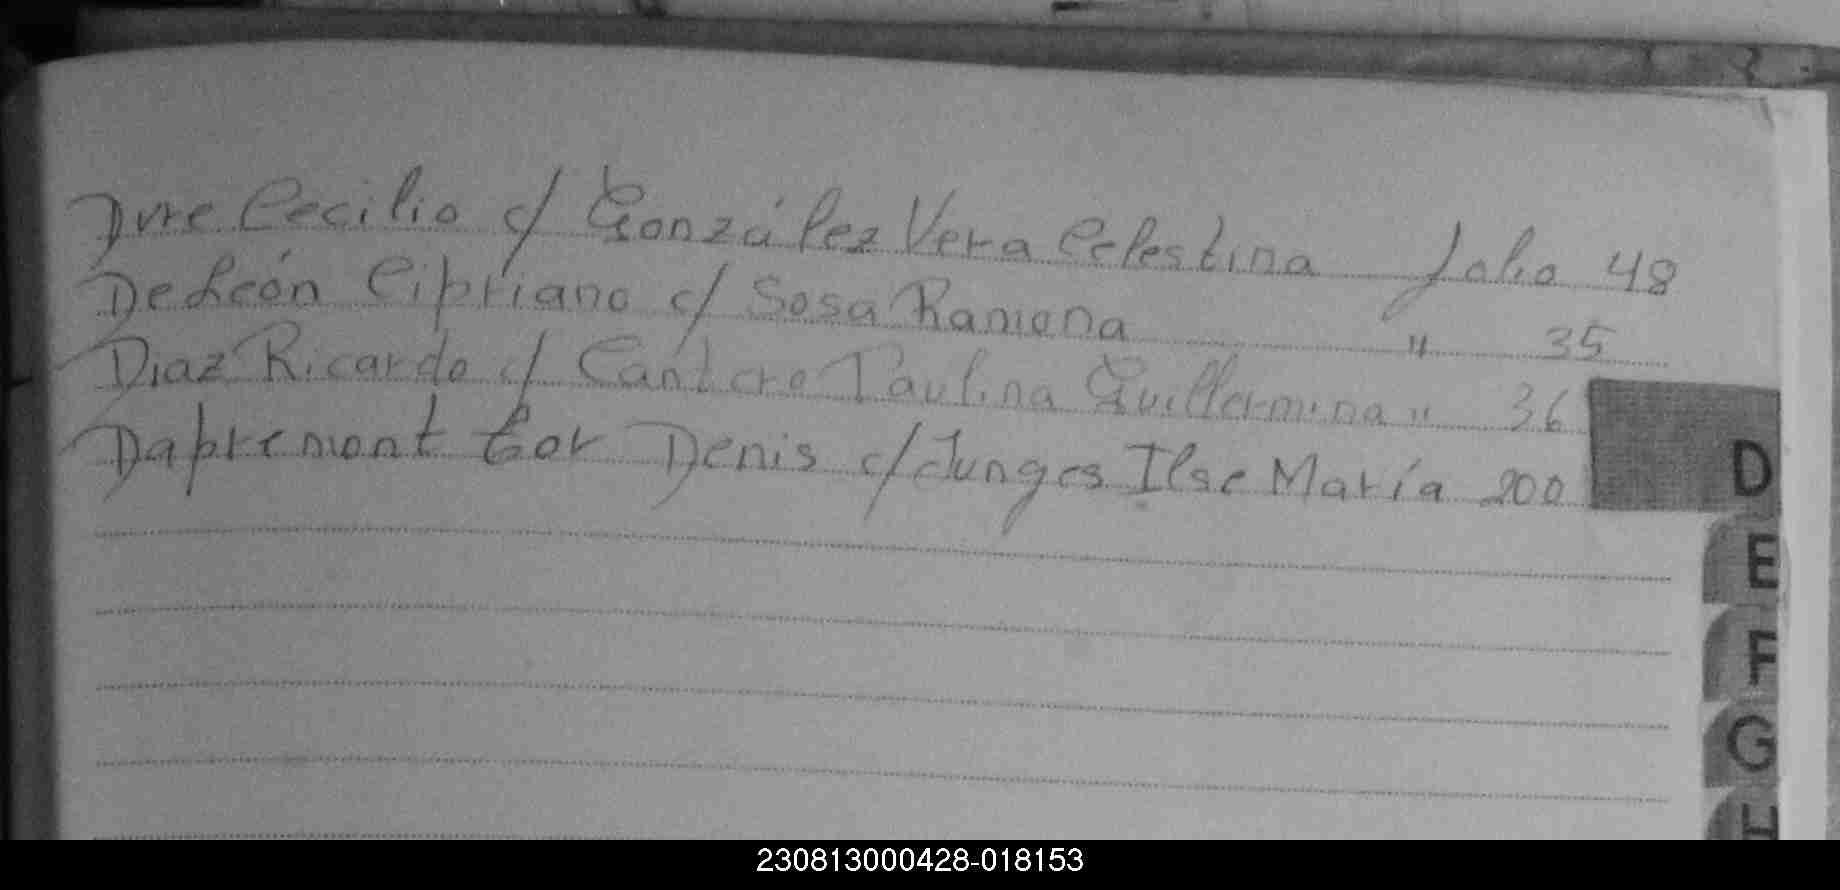 Dvre Cecilio c/ González Vera Celestina folio 48
De León Cipriano c/ Sosa Ramona " 35
Diaz Ricardo c/ Cantero Paulina Guillermina " 36
Dapremont Denis c/ Junges Ilse María 200
D
E
F
G
H
230813000428-018153